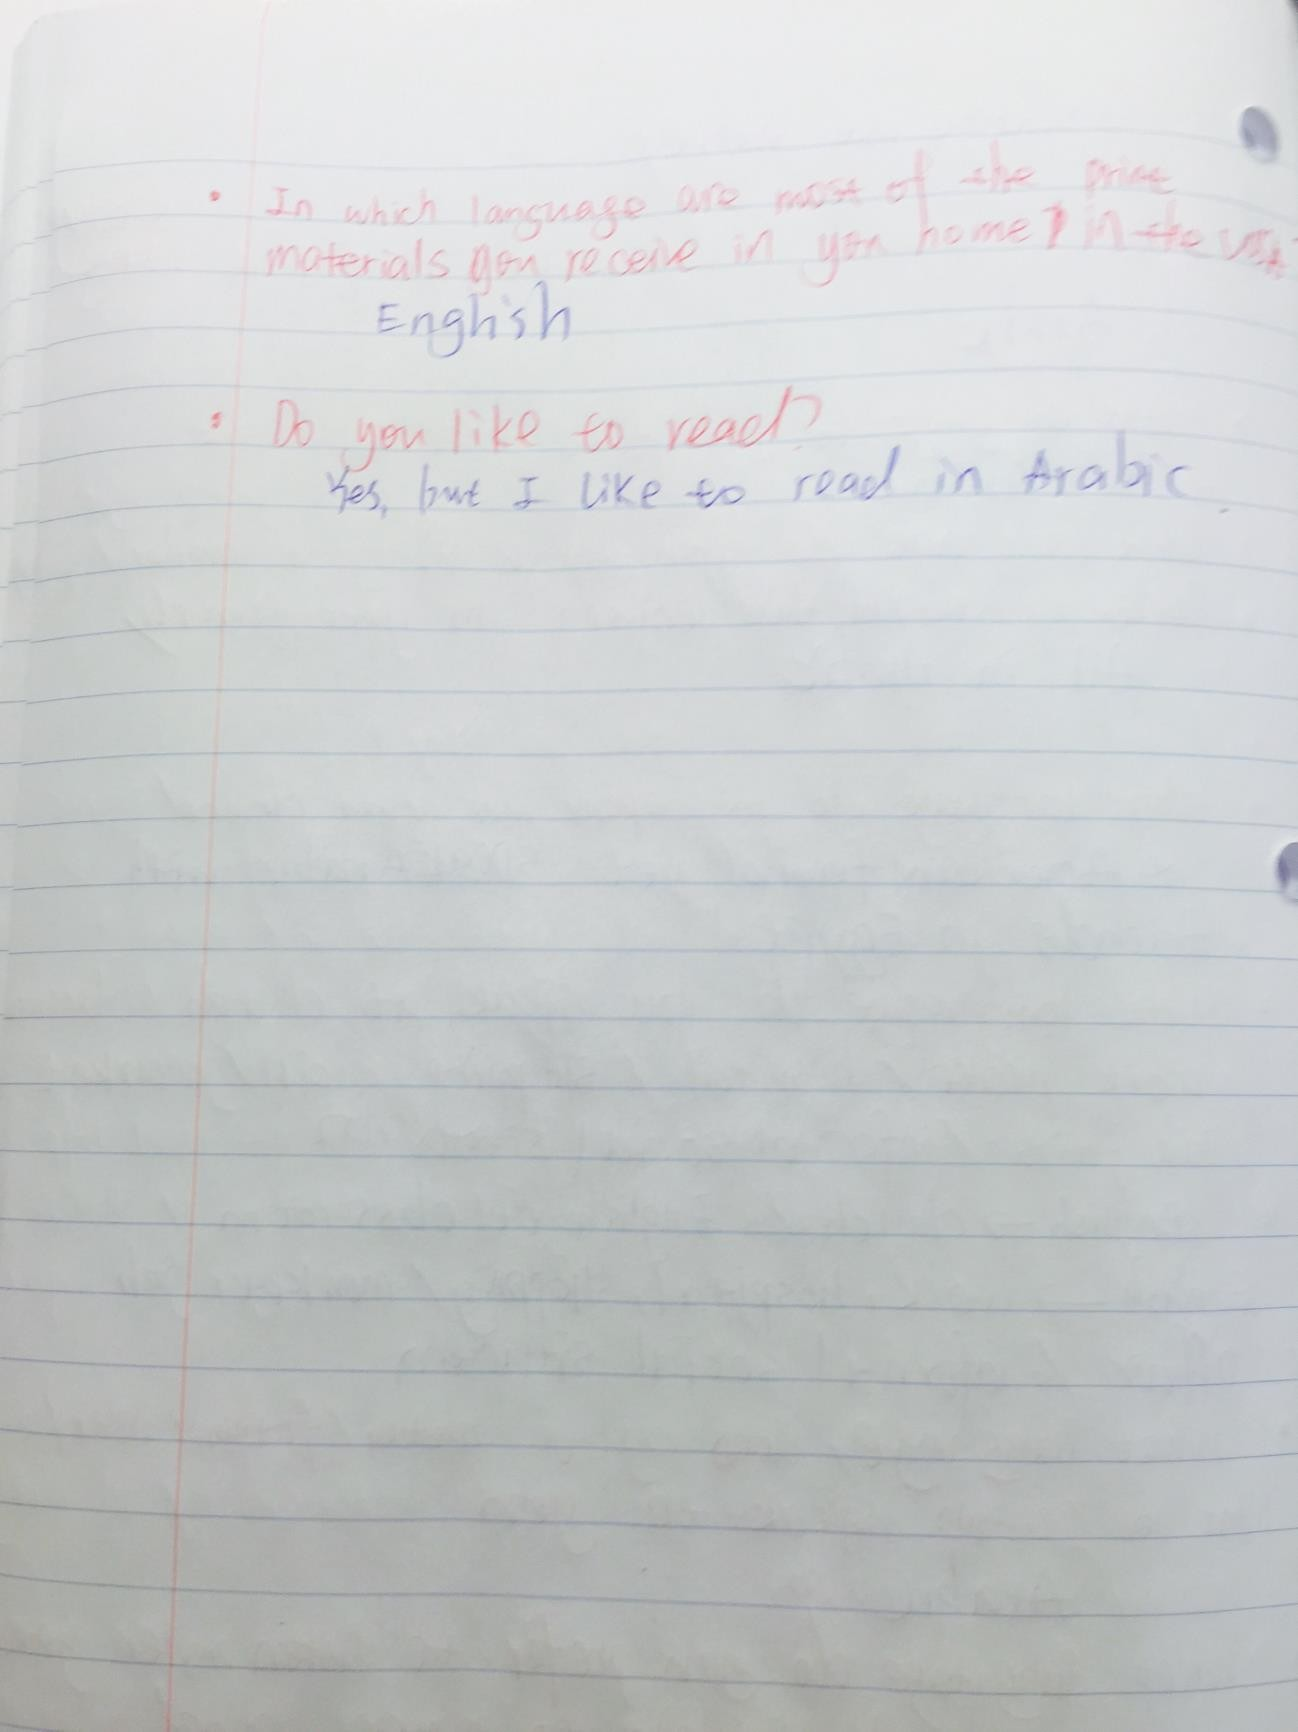 • In which language are most of the print
materials you receive in you home? in the USA?
English
• Do you like to read?
Yes, but I like to read in Arabic.